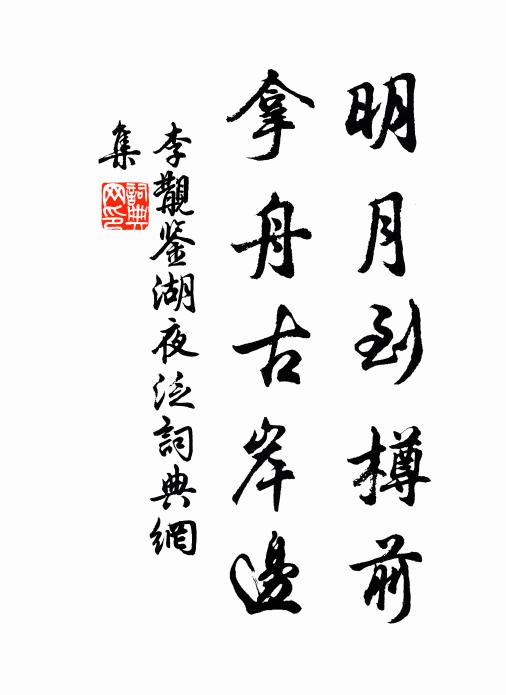 明月到樽前
拿舟古岸邊
李覯鉴湖夜泛詞典網
集
詞典
网印